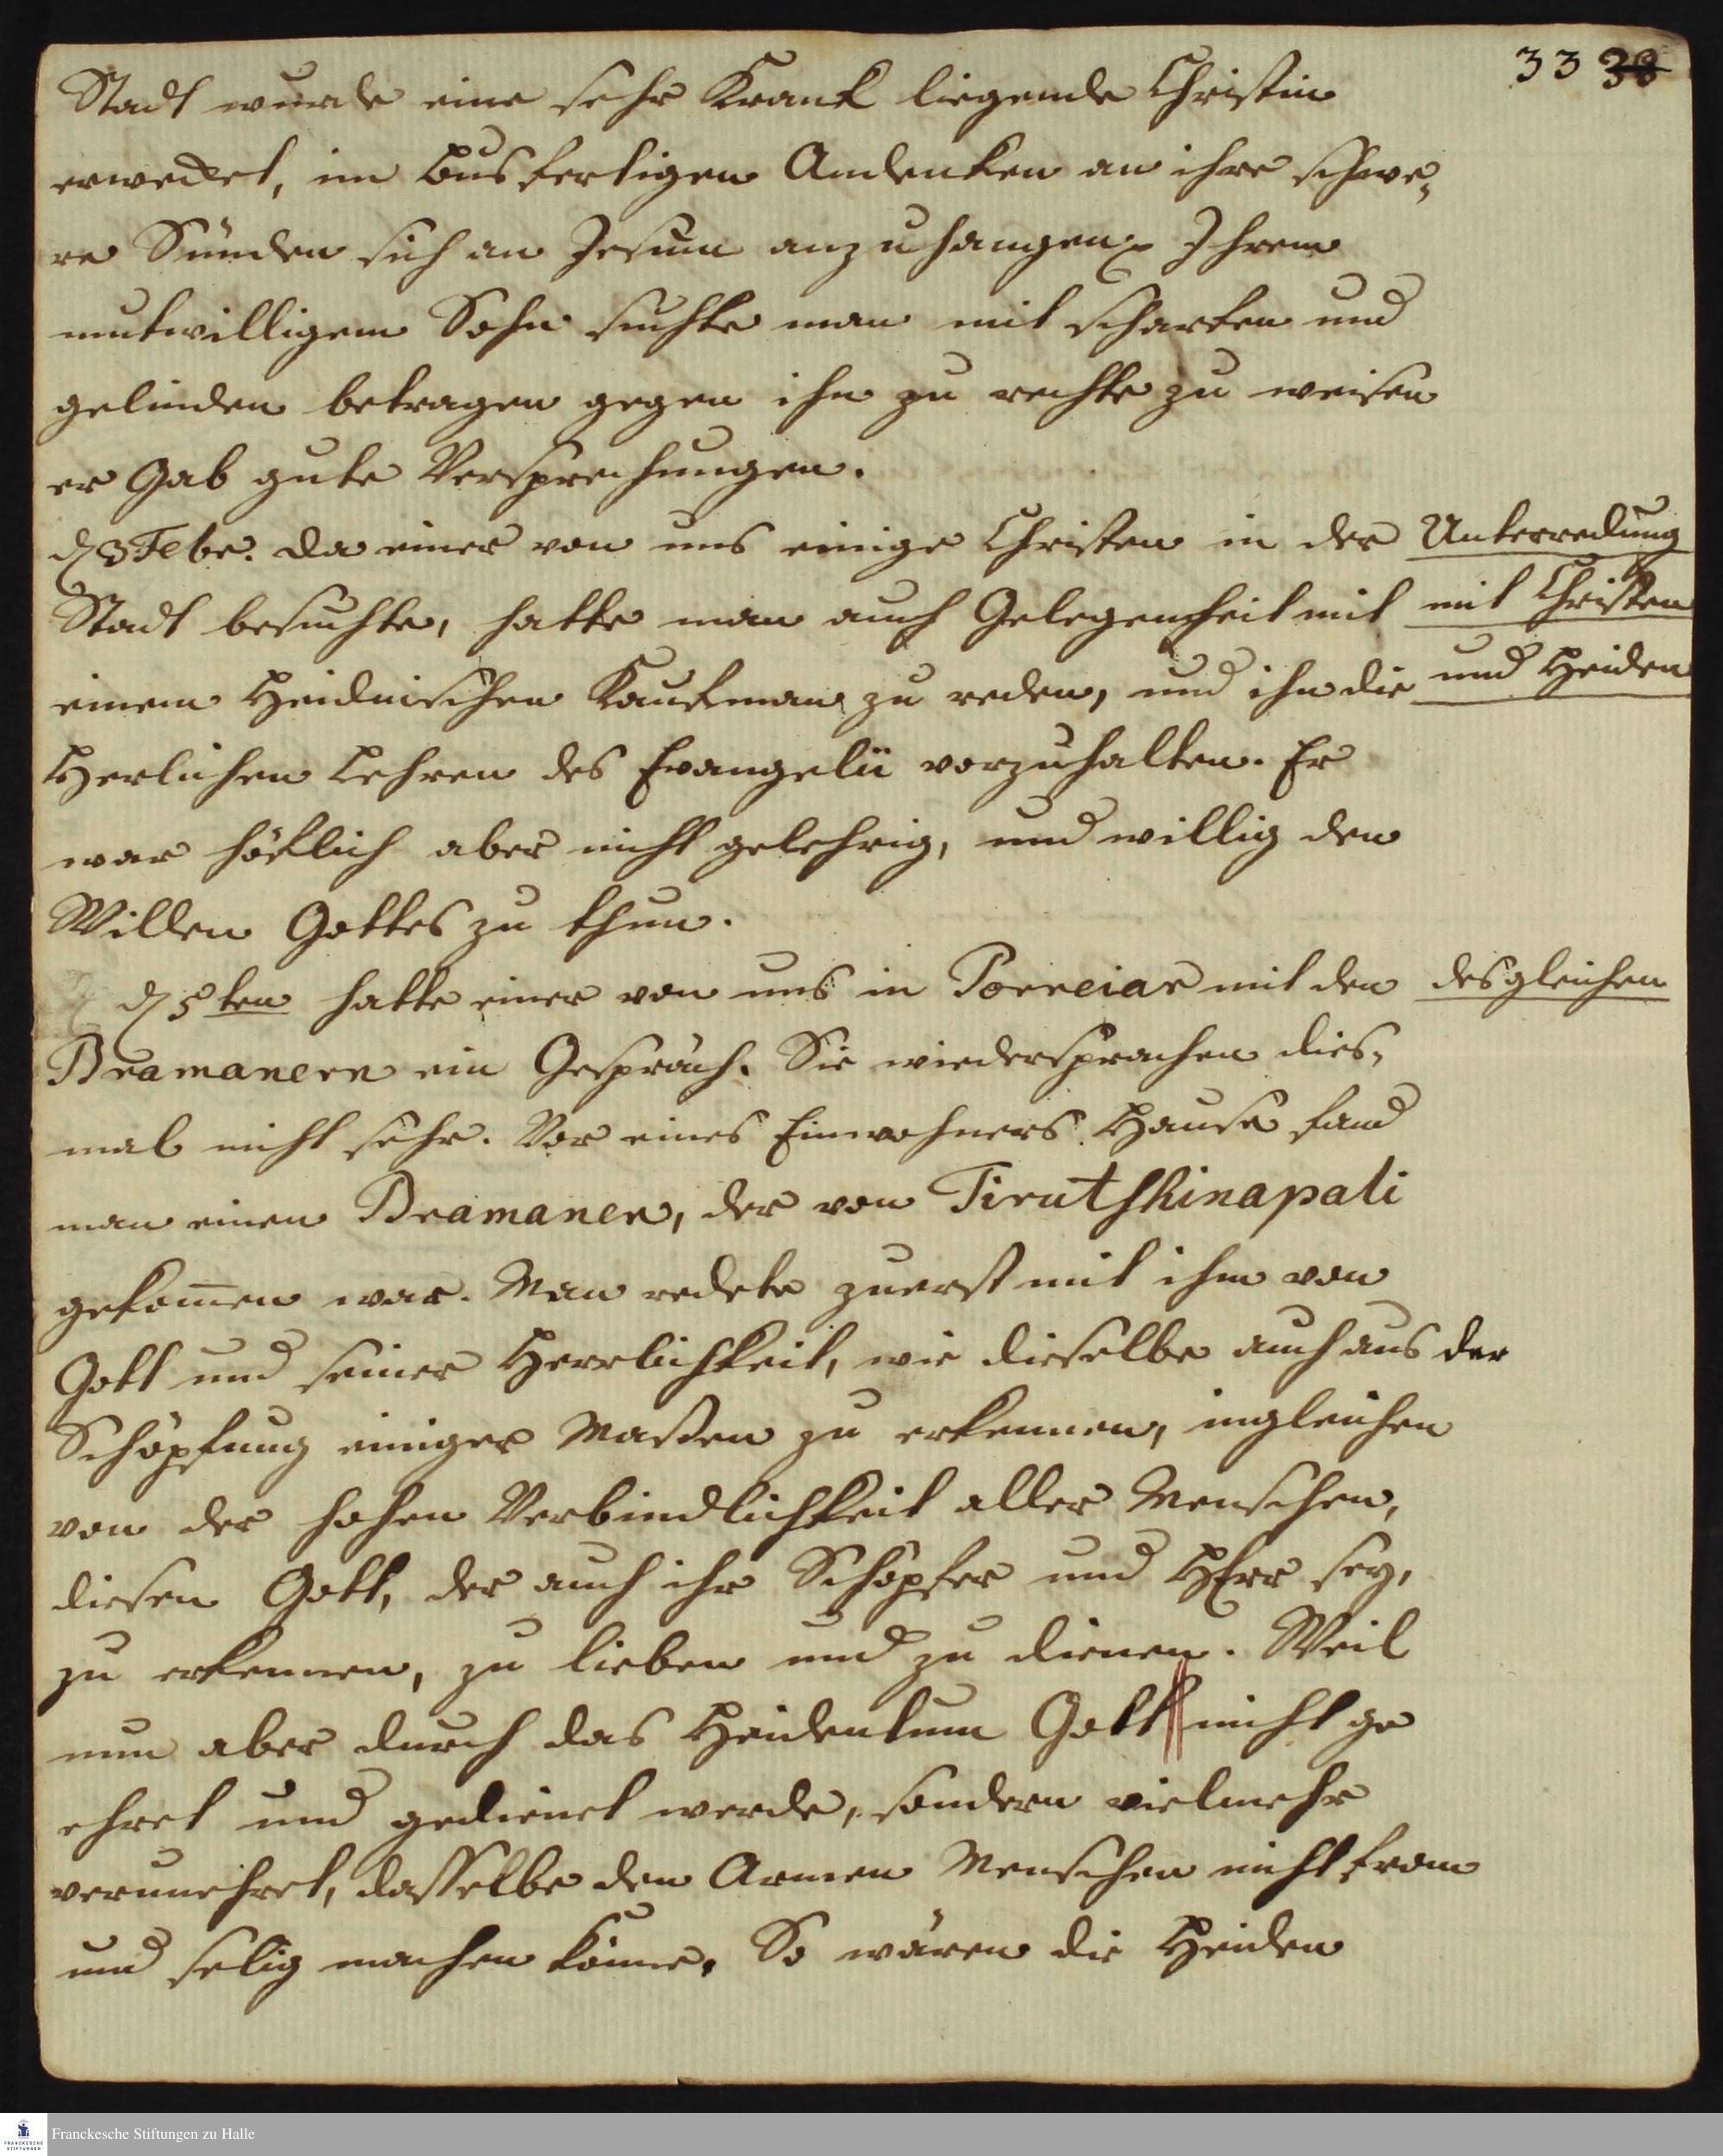 33 38
Stadt wurde eine sehr Krank liegende Christin
erwecket, im busfertigen Andenken an ihre schwe„
re Sünden sich an Jesum anzuhangen. Ihrem
mutwilligem Sohn suchte man mit scharfen und
gelinden betragen gegen ihn zu rechte zu weisen
er Gab gute Versprechungen.
d 3 Febr. da einer von uns einige Christen in der Unterredung
Stadt besuchte, hatte man auch Gelegenheit mit mit Christen
einem Heidnischen Kaufman zu reden, und ihn die und Heiden
Herlichen Lehren des Evangelii vorzuhalten. Er
war höflich aber nicht gelehrig, und willig den
Willen Gottes zu thun.
d 5 ten hatte einer von uns in Porreiar mit den desgleichen
Bramanern ein Gespräch. Sie wiedersprachen dies„
mal nicht sehr. Vor eines Einwohners Hause fand
man einen Bramaner, der von Tirutshinapali
gekom̄en war. Man redete zuerst mit ihm von
Gott und seiner Herrlichkeit, wie dieselbe auch aus der
Schöpfung einiger Maßen zu erkennen, ingleichen
von der hohen Verbindlichkeit aller Menschen,
diesen Gott, der auch ihr Schöpfer und HErr sey,
zu erkennen, zu lieben und zu dienen. Weil
nun aber durch das Heidentum Gott nicht ge
ehret und gedienet werde, sondern vielmehr
verunehret, dasselbe den Armen Menschen nicht from
und selig machen könne, So wären die Heiden
Franckesche Stiftungen zu Halle